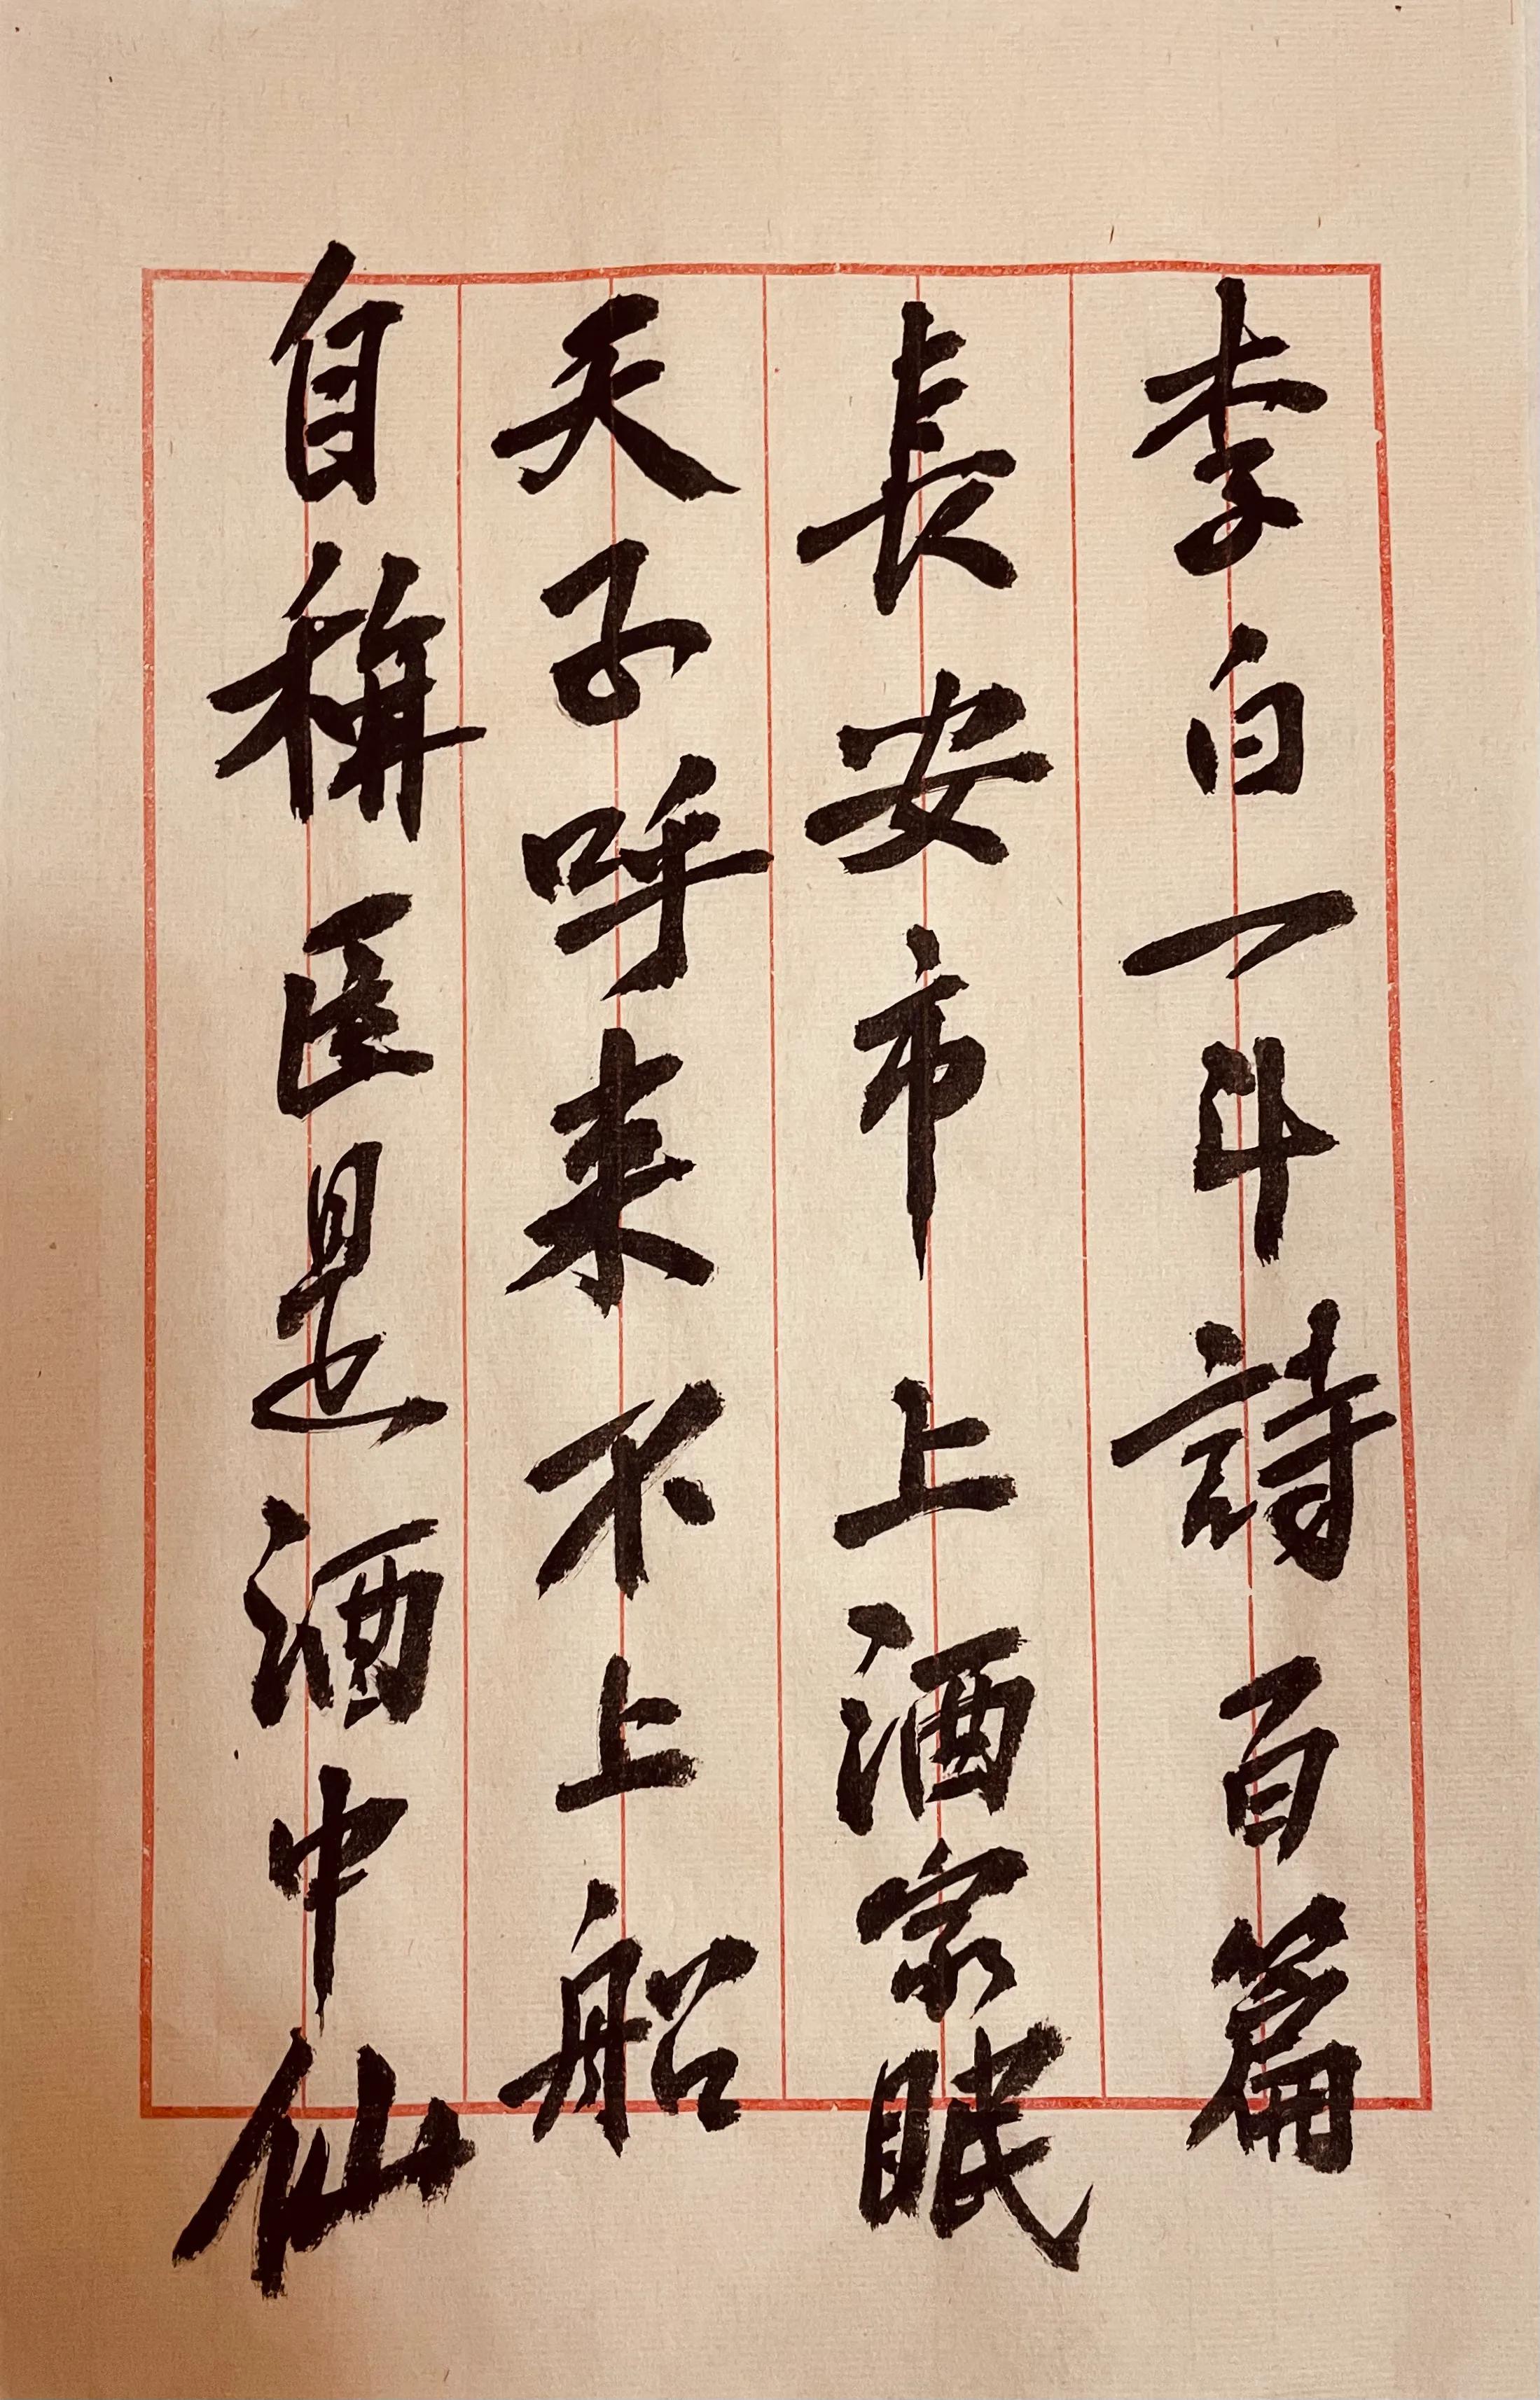 李白一斗詩百篇
長安市上酒家眠
天子呼来不上船
自稱臣是酒中仙